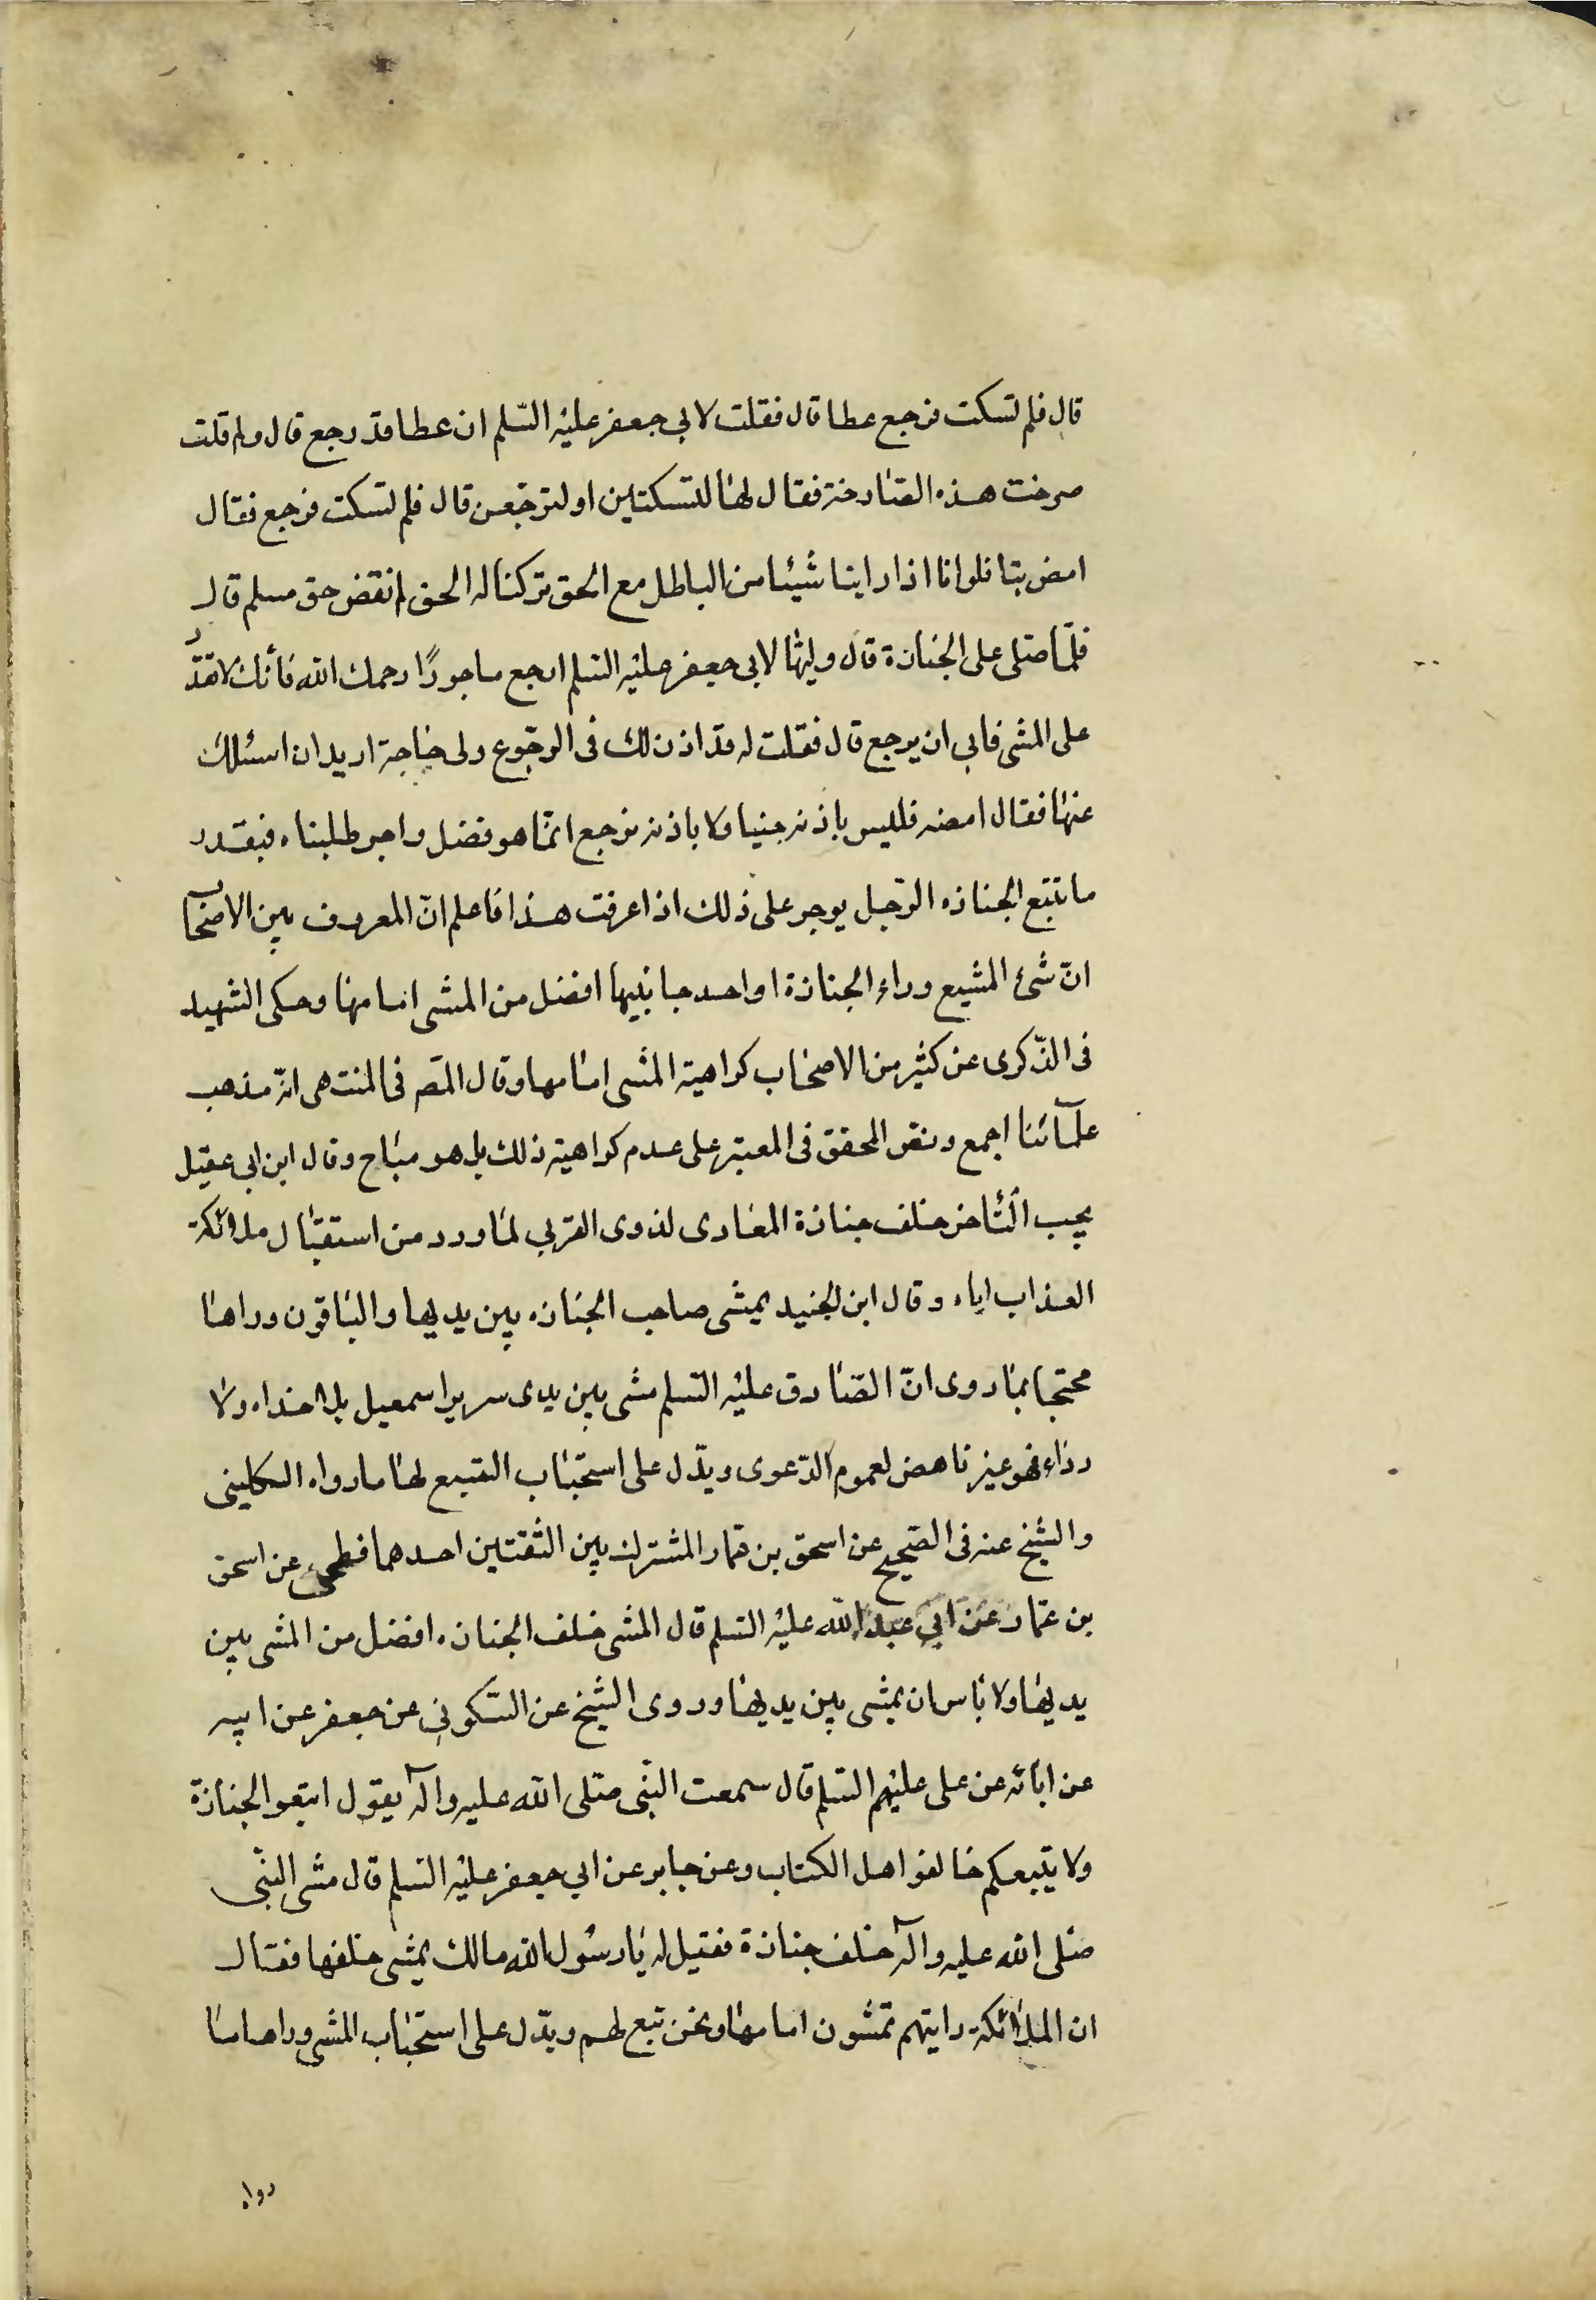 قال فلم تسكت فرجع عطا قال فقلت لابي جعفر عليه السّلم ان عطا قد رجع قال ولم قلت
صرخت هذه الصّارخة فقال لها لتسكتين او لنرجّعن قال فلم تسكت فرجع فقال
امض بنا فلو انا اذا راينا شيئا من الباطل مع الحق تركنا له الحق لم نقض حق مسلم قال
فلمّا صلى على الجنازة قال وليّها لابي جعفر عليه السّلم ارجع ماجورًا رحمك الله فأنّك لا تقدر
على المشى فابى ان يرجع قال فقلت له قد اذن لك فى الرجوع ولى حاجة اريد ان اسئلك
عنها فقال امضه فليس باذنه جئنا ولا باذنه نرجع انّما هو فضل واجر طلبناه فبقدر
ما تتبع الجنازه الرّجل يوجر على ذلك اذا عرفت هذا فاعلم انّ المعروف بين الاصحاب
انّ مشئ المشيع وراء الجنازة او احد جانبيها افضل من المشى امامها وحكى الشهيد
فى الذّكرى عن كثير من الاصحاب كراهية المشى امامها وقال المصّ فى المنتهى انّه مذهب
علمآئنا اجمع ونص المحقق فى المعتبر على عدم كراهية ذلك بل هو مباح وقال ابن ابى عقيل
يجب التّاخر خلف جنازة المعادى لذوى القربى لما ورد من استقبال ملائكة
العذاب اياه وقال ابن الجنيد يمشى صاحب الجنازه بين يديها والباقون وراها
محتجا بما روى انّ الصّادق عليه السّلم مشى بين يدى سرير اسمعيل بلا حذاء ولا
رداء فهو غير ناهض لعموم الدّعوى ويدّل على استحباب التتبع لها ما رواه الكلينى
والشيخ عنه فى الصّحيح عن اسحق بن عمار المشترك بين الثقتين احدهما فطحى عن اسحق
بن عمّار عن ابي عبد الله عليه السّلم قال المشى خلف الجنازه افضل من المشى بين
يديها ولا باس ان يمشى بين يديها وروى الشيخ عن السّكونى عن جعفر عن ابيه
عن ابائه عن على عليهم السّلم قال سمعت النّبى صلى الله عليه وآله يقول اتبعوا الجنازة
ولا يتبعكم خالفوا اهل الكتاب وعن جابر عن ابي جعفر عليه السّلم قال مشى النّبى
صلى الله عليه وآله خلف جنازة فقيل له يا رسول الله مالك يمشى خلفها فقال
ان الملائكة رايتهم تمشون امامها ونحن تبع لهم ويدّل على استحباب المشى وراها ما
رواه